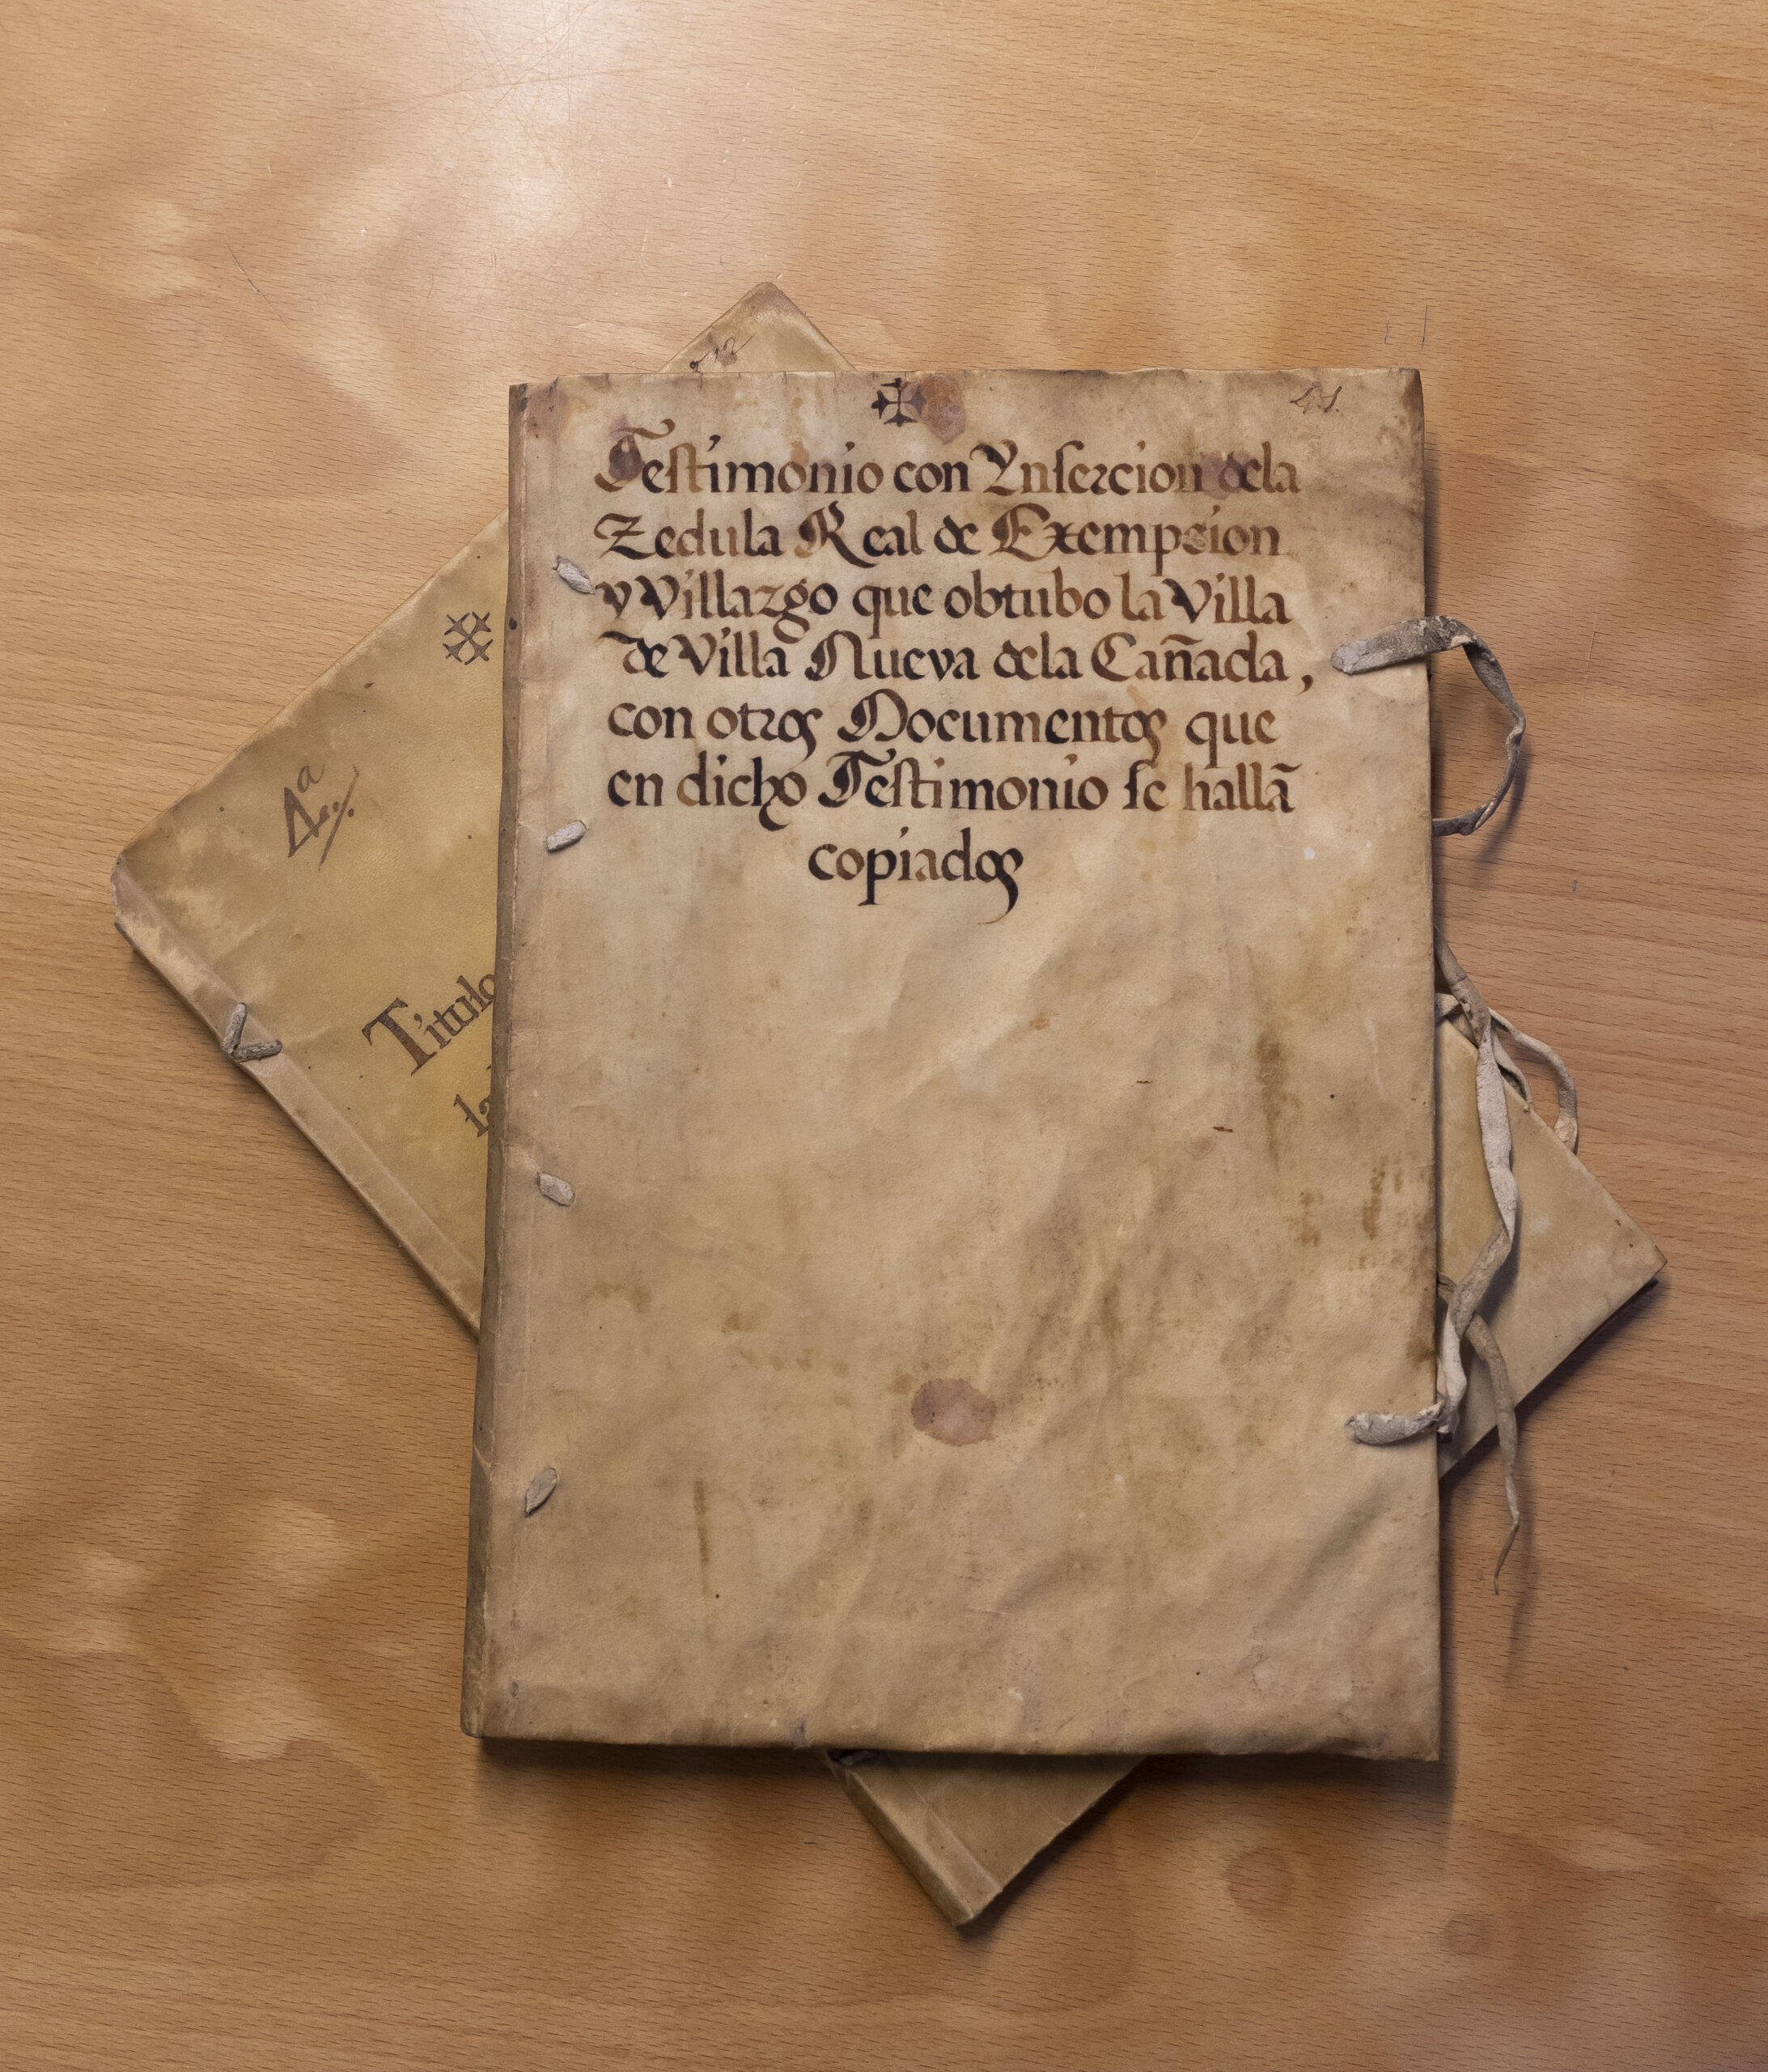 Teſtimonio con Ynſercion dela
Zedula Real de Exempsion
y Villazgo que obtubo la Villa
de Villa Nueva dela Cañada,
con otros Documentos que
en dicho Teſtimonio ſe hallã
copiados
4ª
Titulo
la